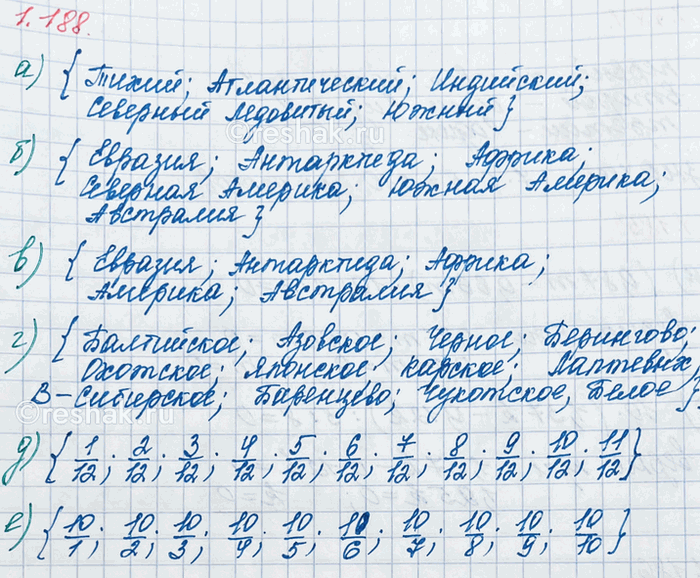 1.188.
а) { Тихий; Атлантический; Индийский;
Северный Ледовитый; Южный }
©reshak.ru
б) { Евразия; Антарктида; Африка;
Северная Америка; Южная Америка;
Австралия }
в) { Евразия; Антарктида; Африка;
Америка; Австралия }
г) { Балтийское; Азовское; Черное; Берингово;
Охотское; Японское Карское; Лаптевых,
В-Сибирское; Баренцево; Чукотское, Белое }
©reshak.ru
д) { 1/12; 2/12; 3/12; 4/12; 5/12; 6/12; 7/12; 8/12; 9/12; 10/12; 11/12 }
е) { 10/1; 10/2; 10/3; 10/4; 10/5; 10/6; 10/7; 10/8; 10/9; 10/10 }